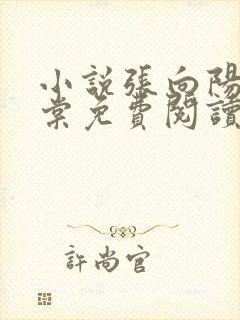 小説張向陽
棠免費閱讀
許尚官